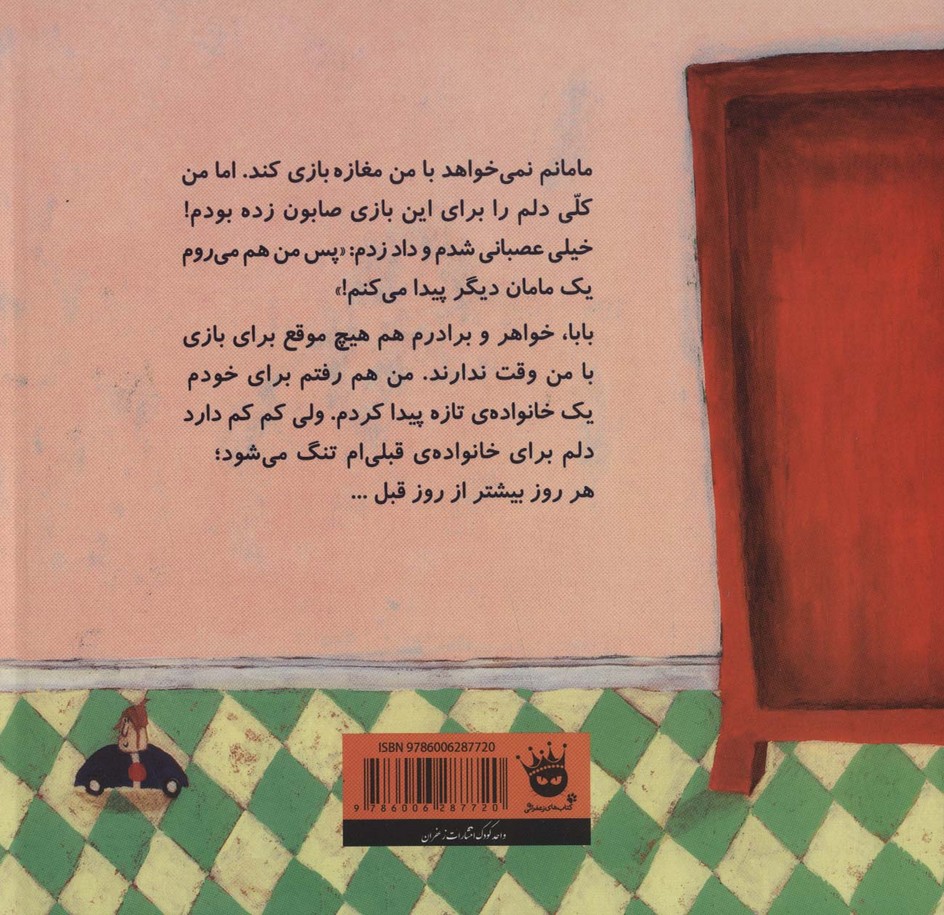 مامانم نمی‌خواهد با من مغازه‌بازی کند. اما من
کلّی دلم را برای این بازی صابون زده بودم!
خیلی عصبانی شدم و داد زدم: «پس من هم می‌روم
یک مامان دیگر پیدا می‌کنم!»
بابا، خواهر و برادرم هم هیچ موقع برای بازی
با من وقت ندارند. من هم رفتم برای خودم
یک خانواده‌ی تازه پیدا کردم. ولی کم کم دارد
دلم برای خانواده‌ی قبلی‌ام تنگ می‌شود؛
هر روز بیشتر از روز قبل ...
ISBN 9786006287720
9 786006 287720
کتاب‌های زعفرانی
واحد کودک انتشارات زعفران